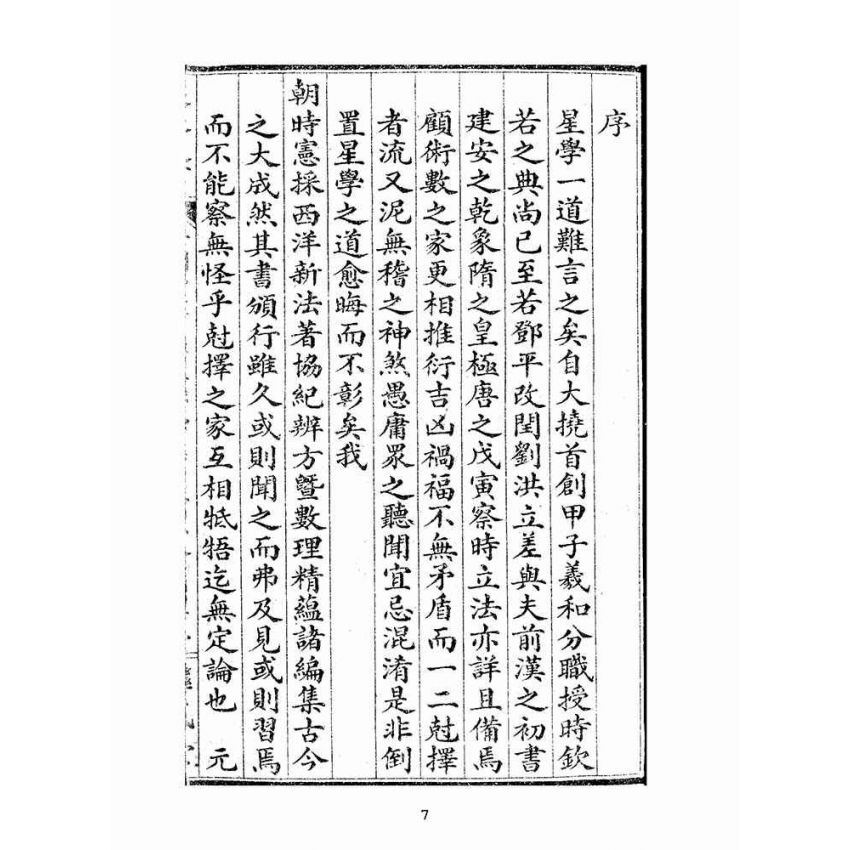 序
星學一道難言之矣自大撓首創甲子羲和分職授時欽
若之典尚已至若鄧平改閏劉洪立差與夫前漢之初書
建安之乾象隋之皇極唐之戊寅察時立法亦詳且備焉
顧術數之家更相推衍吉凶禍福不無矛盾而一二尅擇
者流又泥無稽之神煞愚庸眾之聽聞宜忌混淆是非倒
置星學之道愈晦而不彰矣我
朝時憲採西洋新法著協紀辨方曁數理精蘊諸編集古今
之大成然其書頒行雖久或則聞之而弗及見或則習焉
而不能察無怪乎尅擇之家互相牴牾迄無定論也 元
7